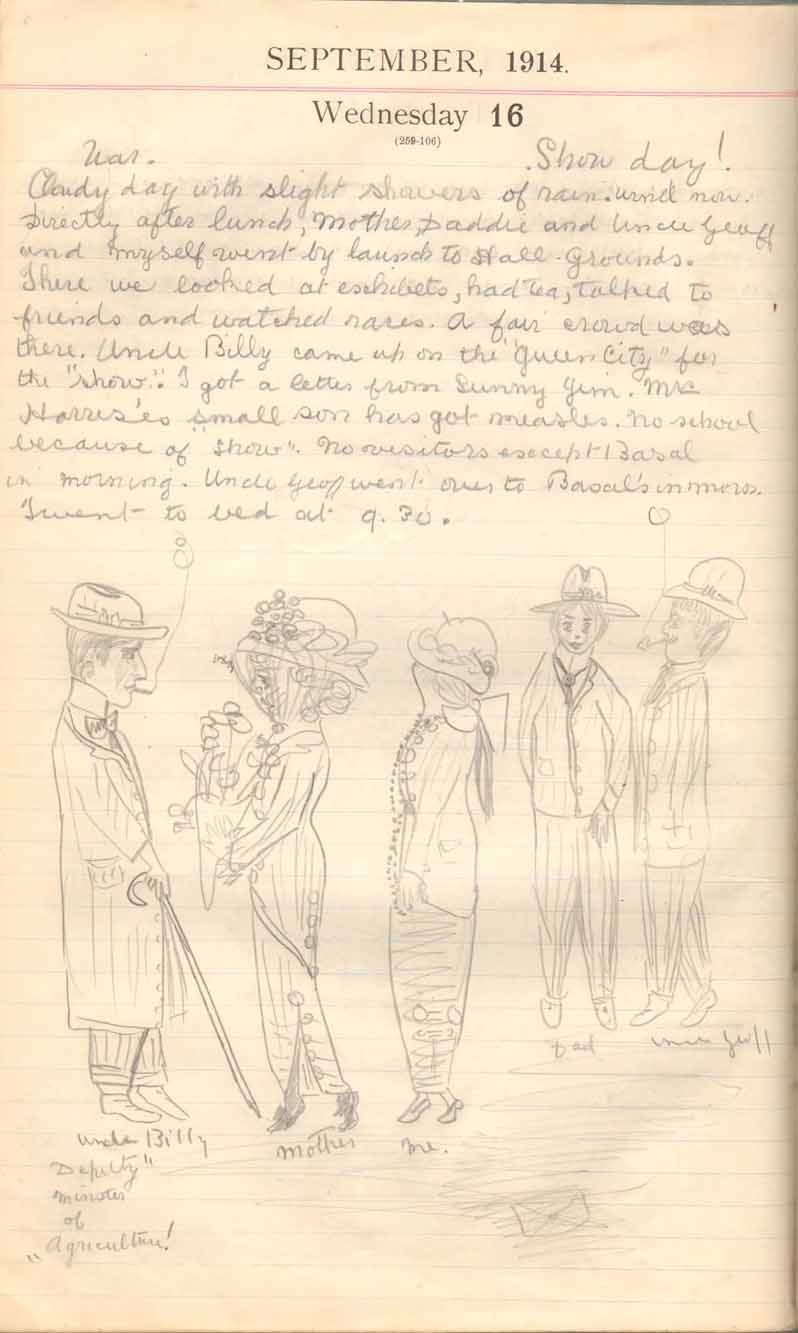 SEPTEMBER, 1914.
Wednesday 16
(259-106)
War. Show day!
Cloudy day with slight showers of rain. wind now.
Directly after lunch, Mother, Daddie and Uncle Geoff
and myself went by launch to Hall-Grounds.
There we looked at exhibets, had tea, talked to
friends and watched races. A fair crowd was
there. Uncle Billy came up on the "Queen City" for
the "show". I got a letter from Sunny Jim. Mrs
Harris'es small son has got measles. No school
because of "Show". No visitors except Basal
in morning. Uncle Geoff went over to Basal's in morn.
I went to bed at 9.30.
Dad
Uncle Geoff
Uncle Billy
Deputy"
minster
of
"Agriculture!
Mother
me.